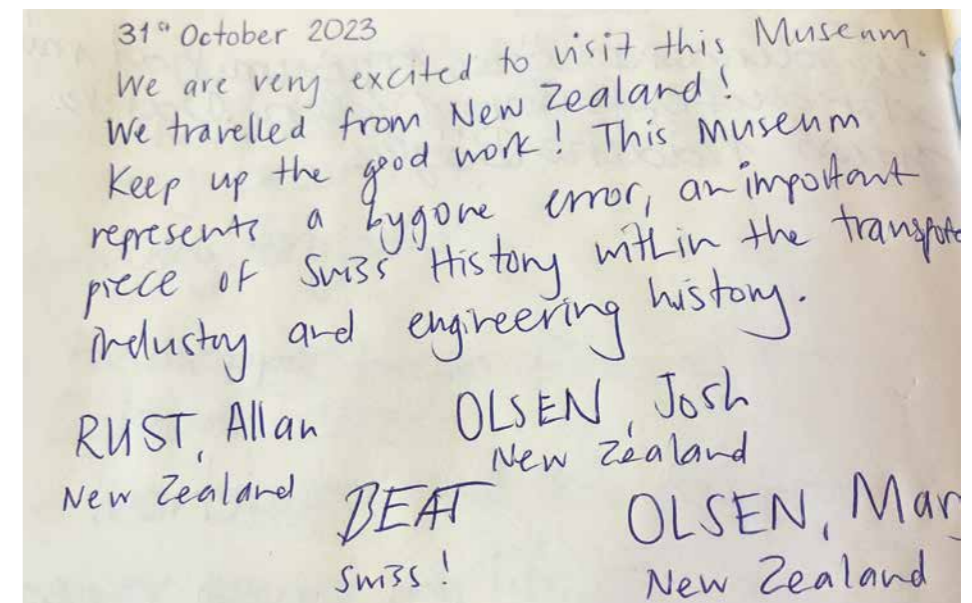 31st October 2023
We are very excited to visit this Museum.
We travelled from New Zealand!
Keep up the good work! This Museum
represents a bygone error, an important
piece of Swiss History within the transport
industry and engineering history.
RUST, Allan
OLSEN, Josh
New Zealand
New Zealand
BEAT
OLSEN, Mary
Swiss!
New Zealand